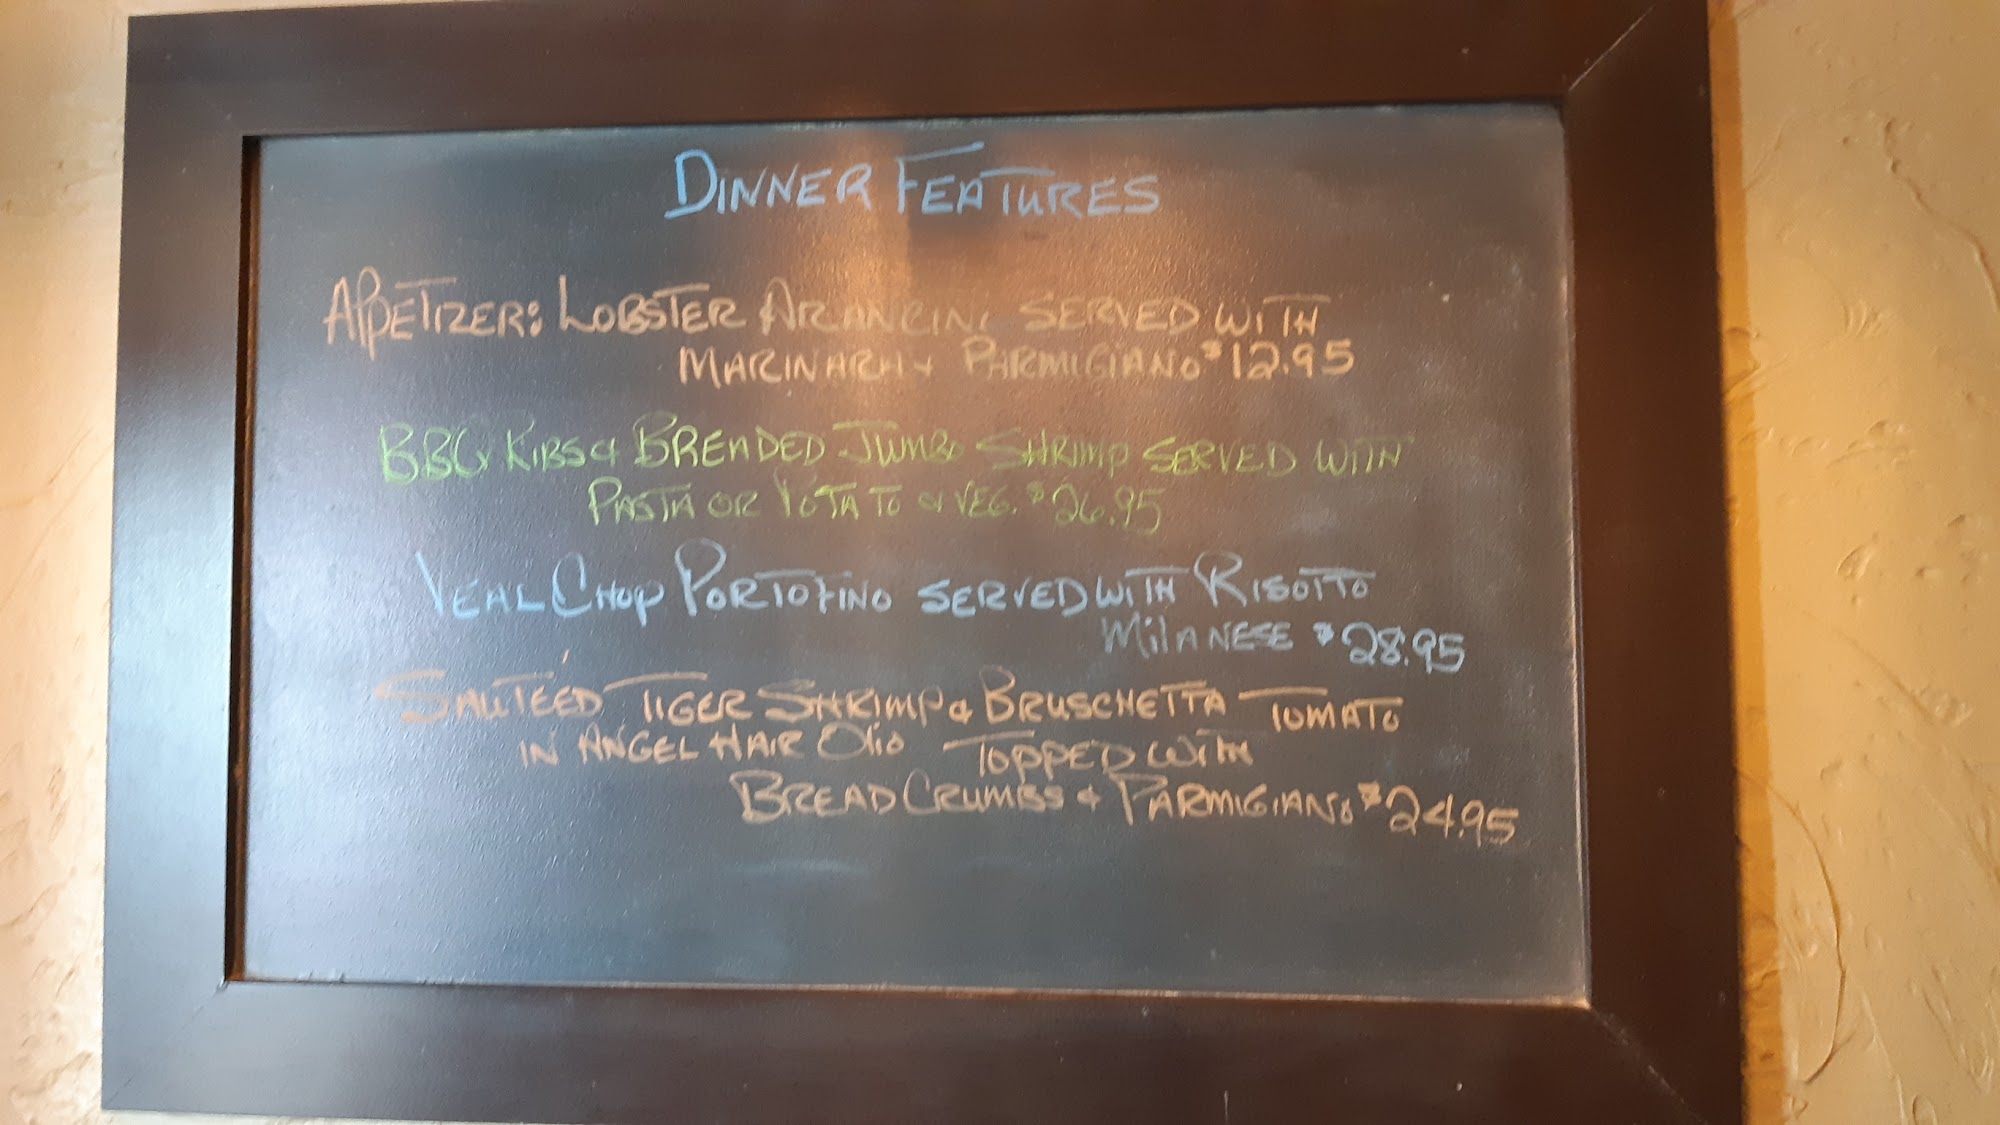 DINNER FEATURES
APPETIZER: LOBSTER ARANCINI SERVED WITH
MARINARA & PARMIGIANO $12.95
BBQ RIBS & BREADED JUMBO SHRIMP SERVED WITH
PASTA OR POTATO & VEG. $26.95
VEAL CHOP PORTOFINO SERVED WITH RISOTTO
MILANESE $28.95
SAUTÉED TIGER SHRIMP & BRUSCHETTA TOMATO
IN ANGEL HAIR OLIO TOPPED WITH
BREAD CRUMBS & PARMIGIANO $24.95